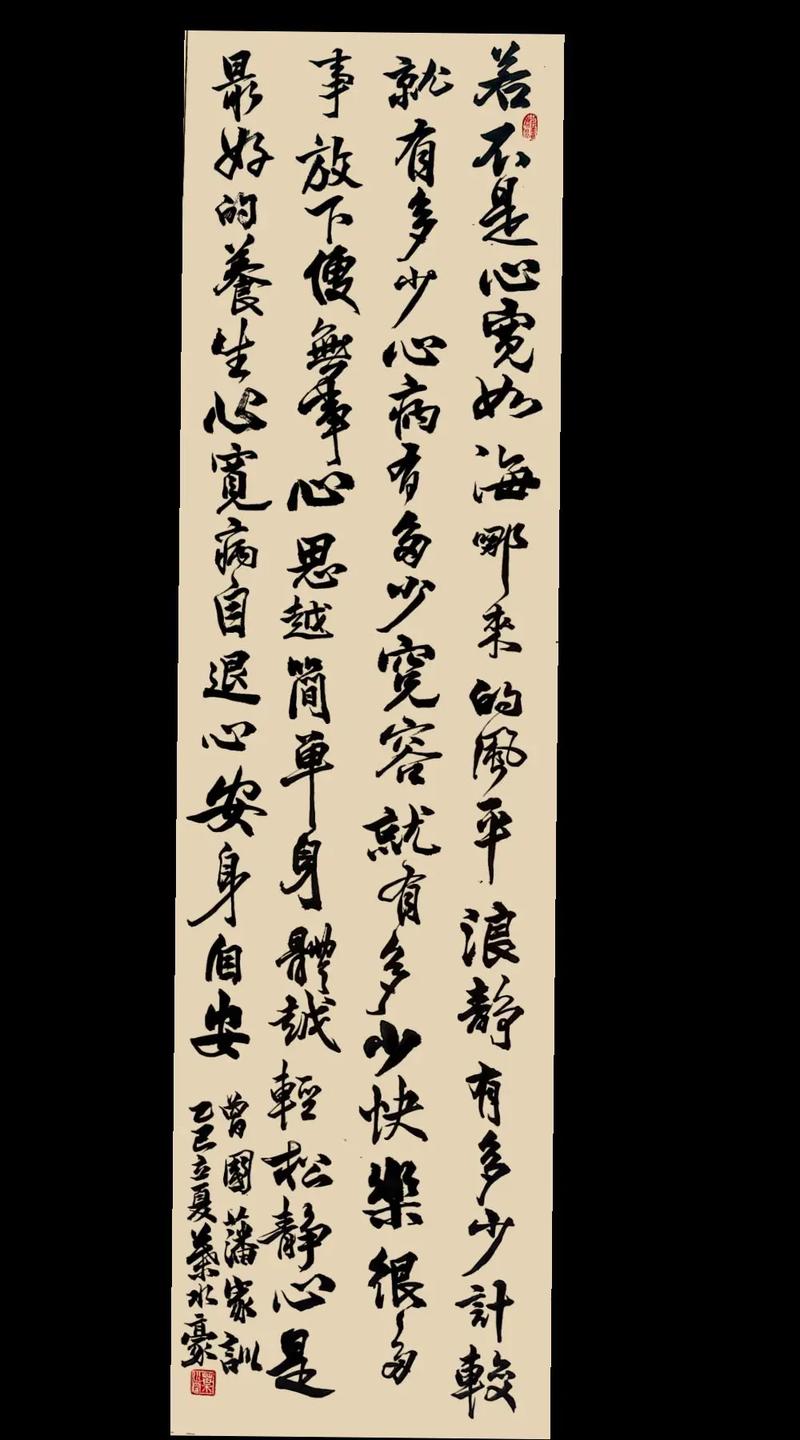 若不是心寬如海哪來的風平浪静有多少計較
就有多少心病有多少寬容就有多少快樂很多
事放下便無事心思越簡单身體越輕松静心是
最好的養生心寬病自退心安身自安
曾國藩家訓
乙巳立夏葉水豪